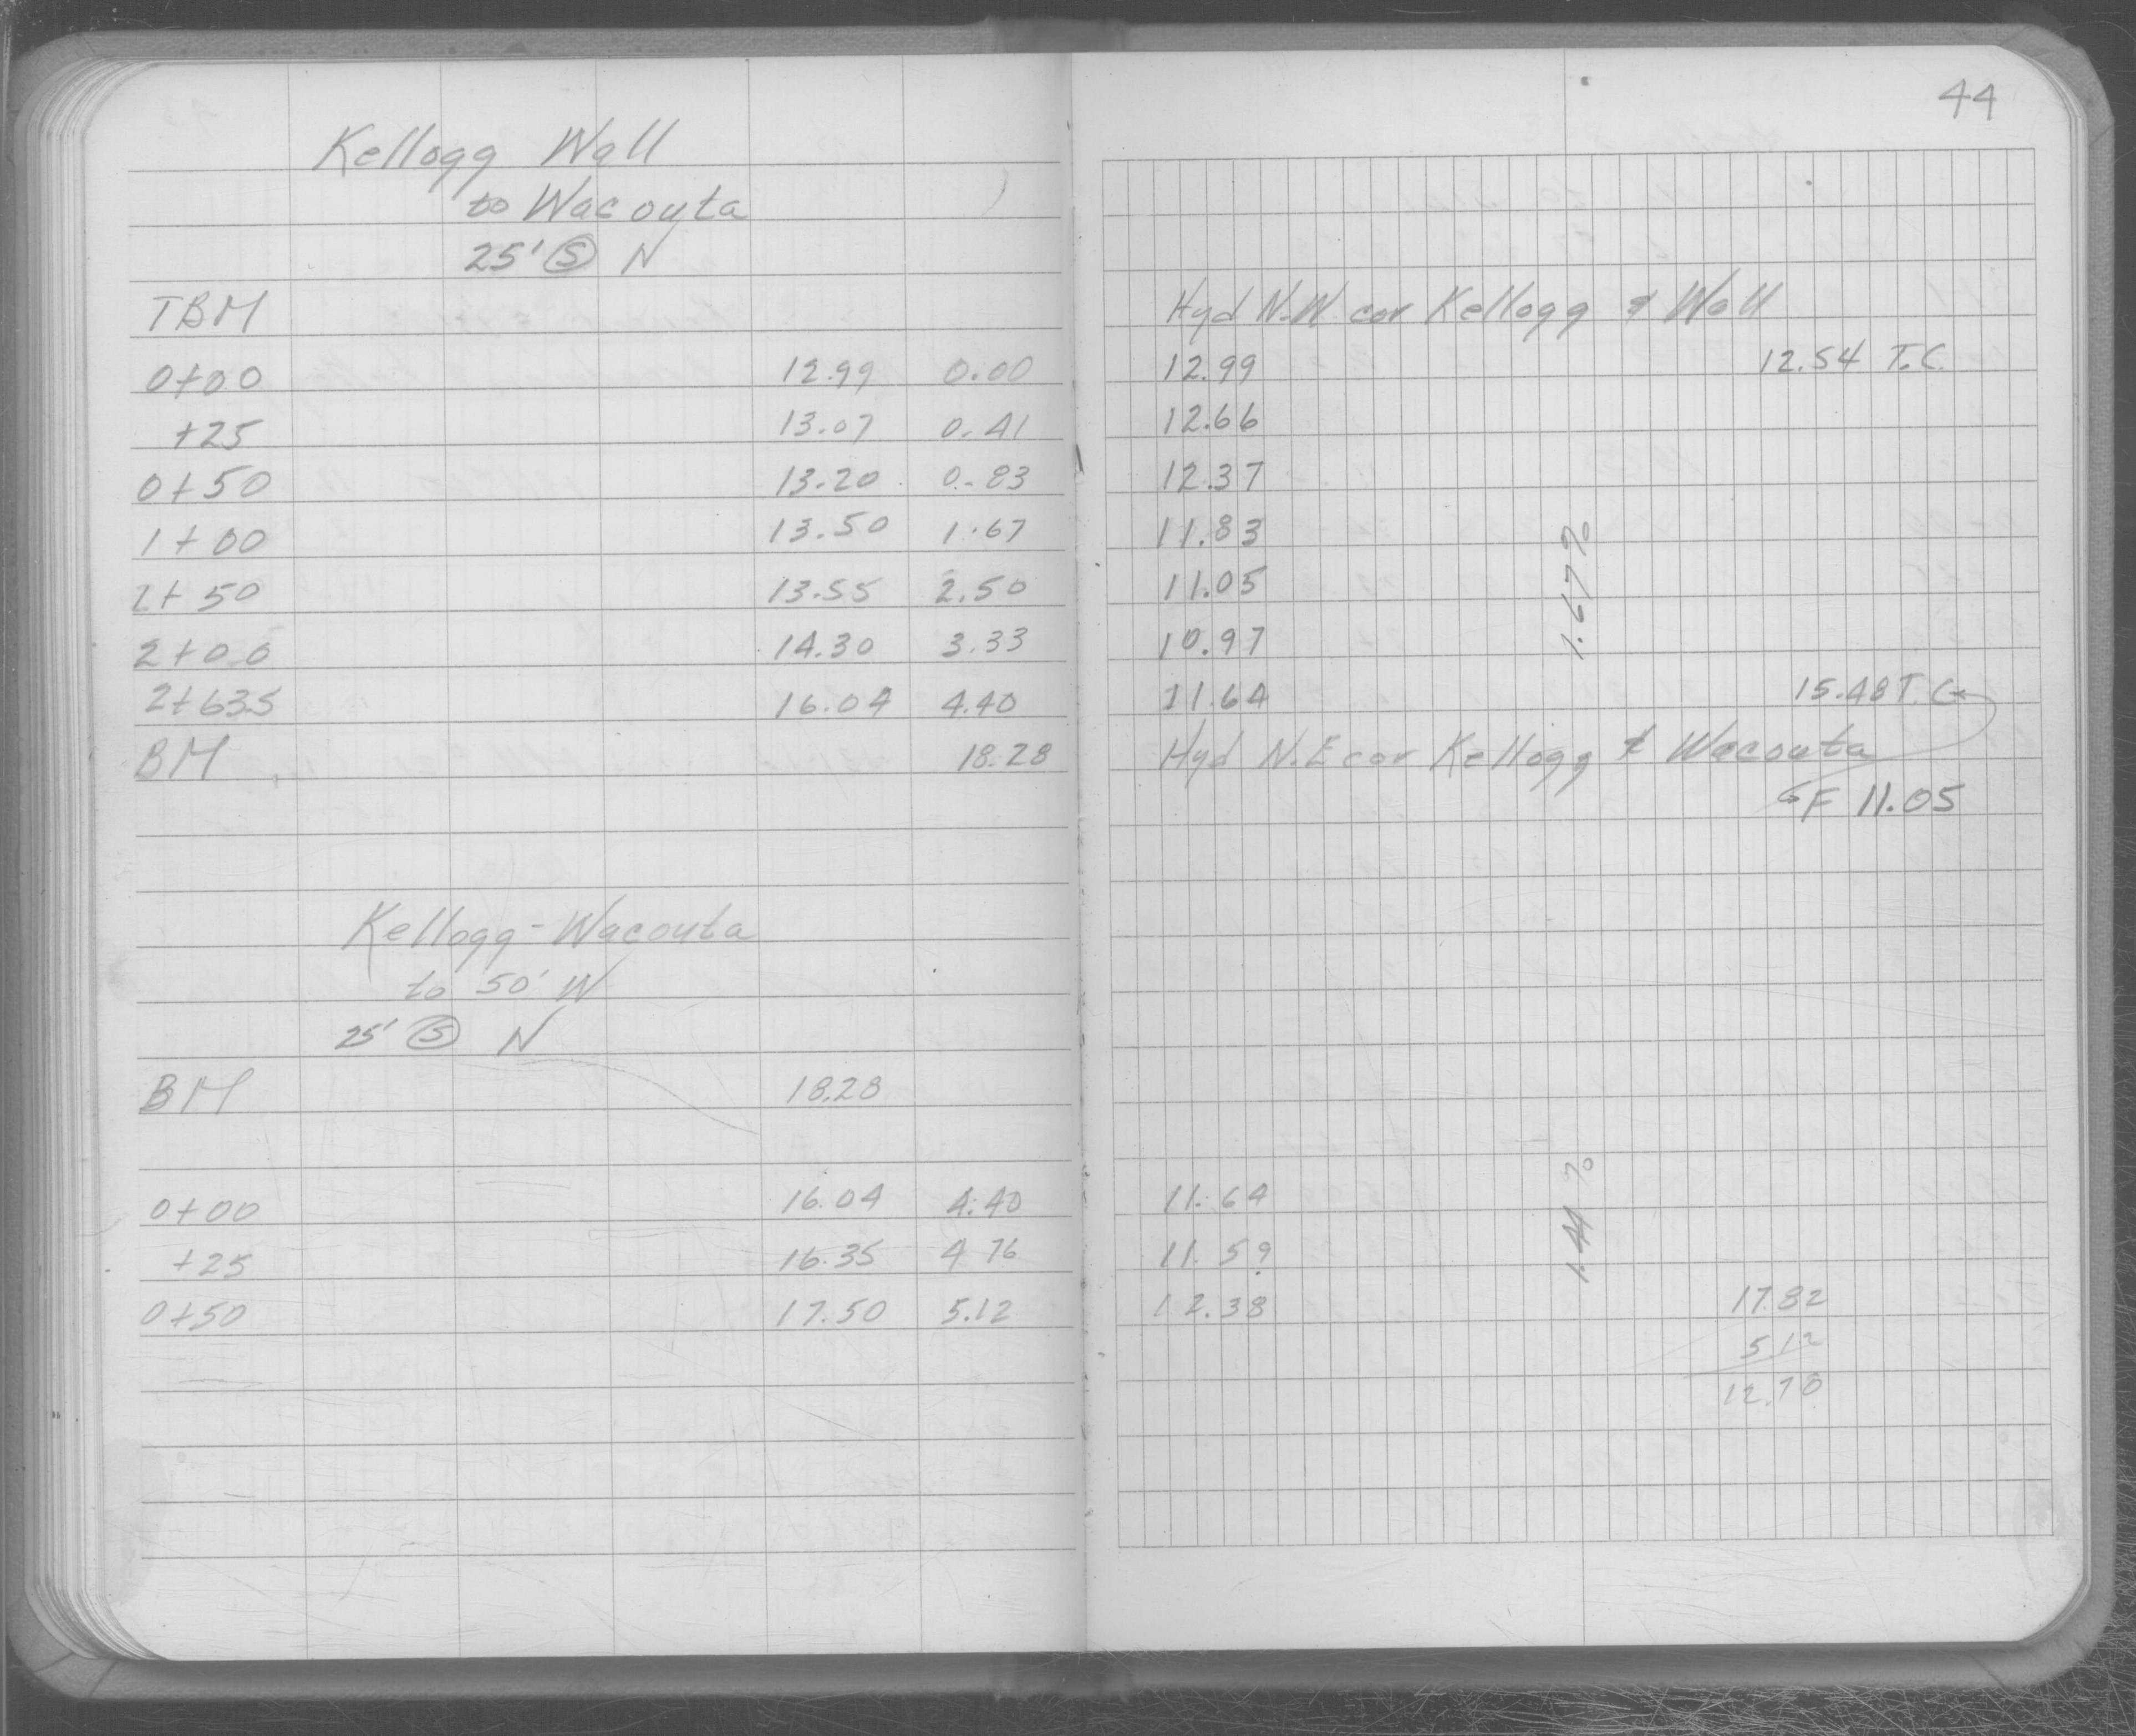 44
Kellogg Wall
to Wacouta
25' Ⓢ N
TBM Hyd N.W. cor Kellogg & Wall
0+00 12.99 0.00 12.99 12.54 T.C.
+25 13.07 0.41 12.66
0+50 13.20 0.83 12.37
1+00 13.50 1.67 11.83
1+50 13.55 2.50 11.05
2+00 14.30 3.33 10.97
1.67%
2+635 16.04 4.40 11.64 15.48 T.C.
BM 18.28 Hyd N.E cor Kellogg & Wacouta
F 11.05
Kellogg-Wacouta
to 50' W
25' Ⓢ N
BM 18.28
0+00 16.04 4.40 11.64
+25 16.35 4 76 11.59
1.44%
0+50 17.50 5.12 12.38 17.82
5 12
12.70